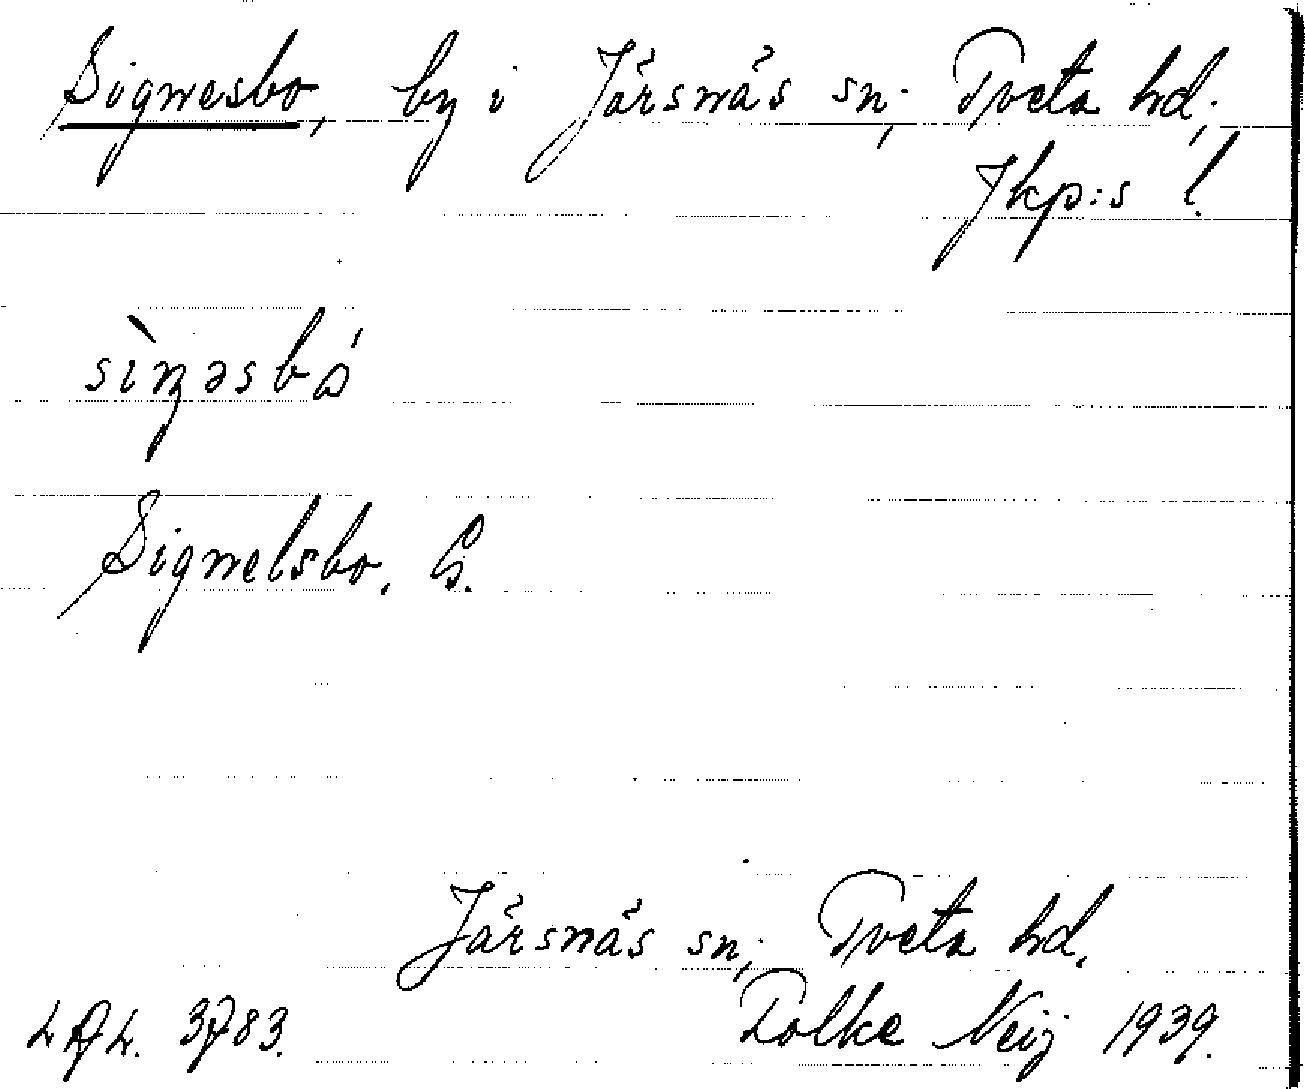 Signesbo, by i Järsnäs sn; Tveta hd;
Jkp:s l.
Signelsbo. G.
Järsnäs sn; Tveta hd.
3783. Folke Neij 1939.